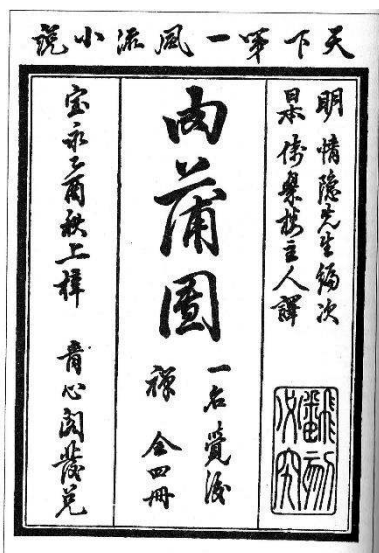 天下第一風流小説
明 情隱先生編次
日本 倚翠楼主人譯
肉蒲團
一名覺後
禪 全四冊
宝永乙酉秋上梓 青心閣發兌
飜刻
必究